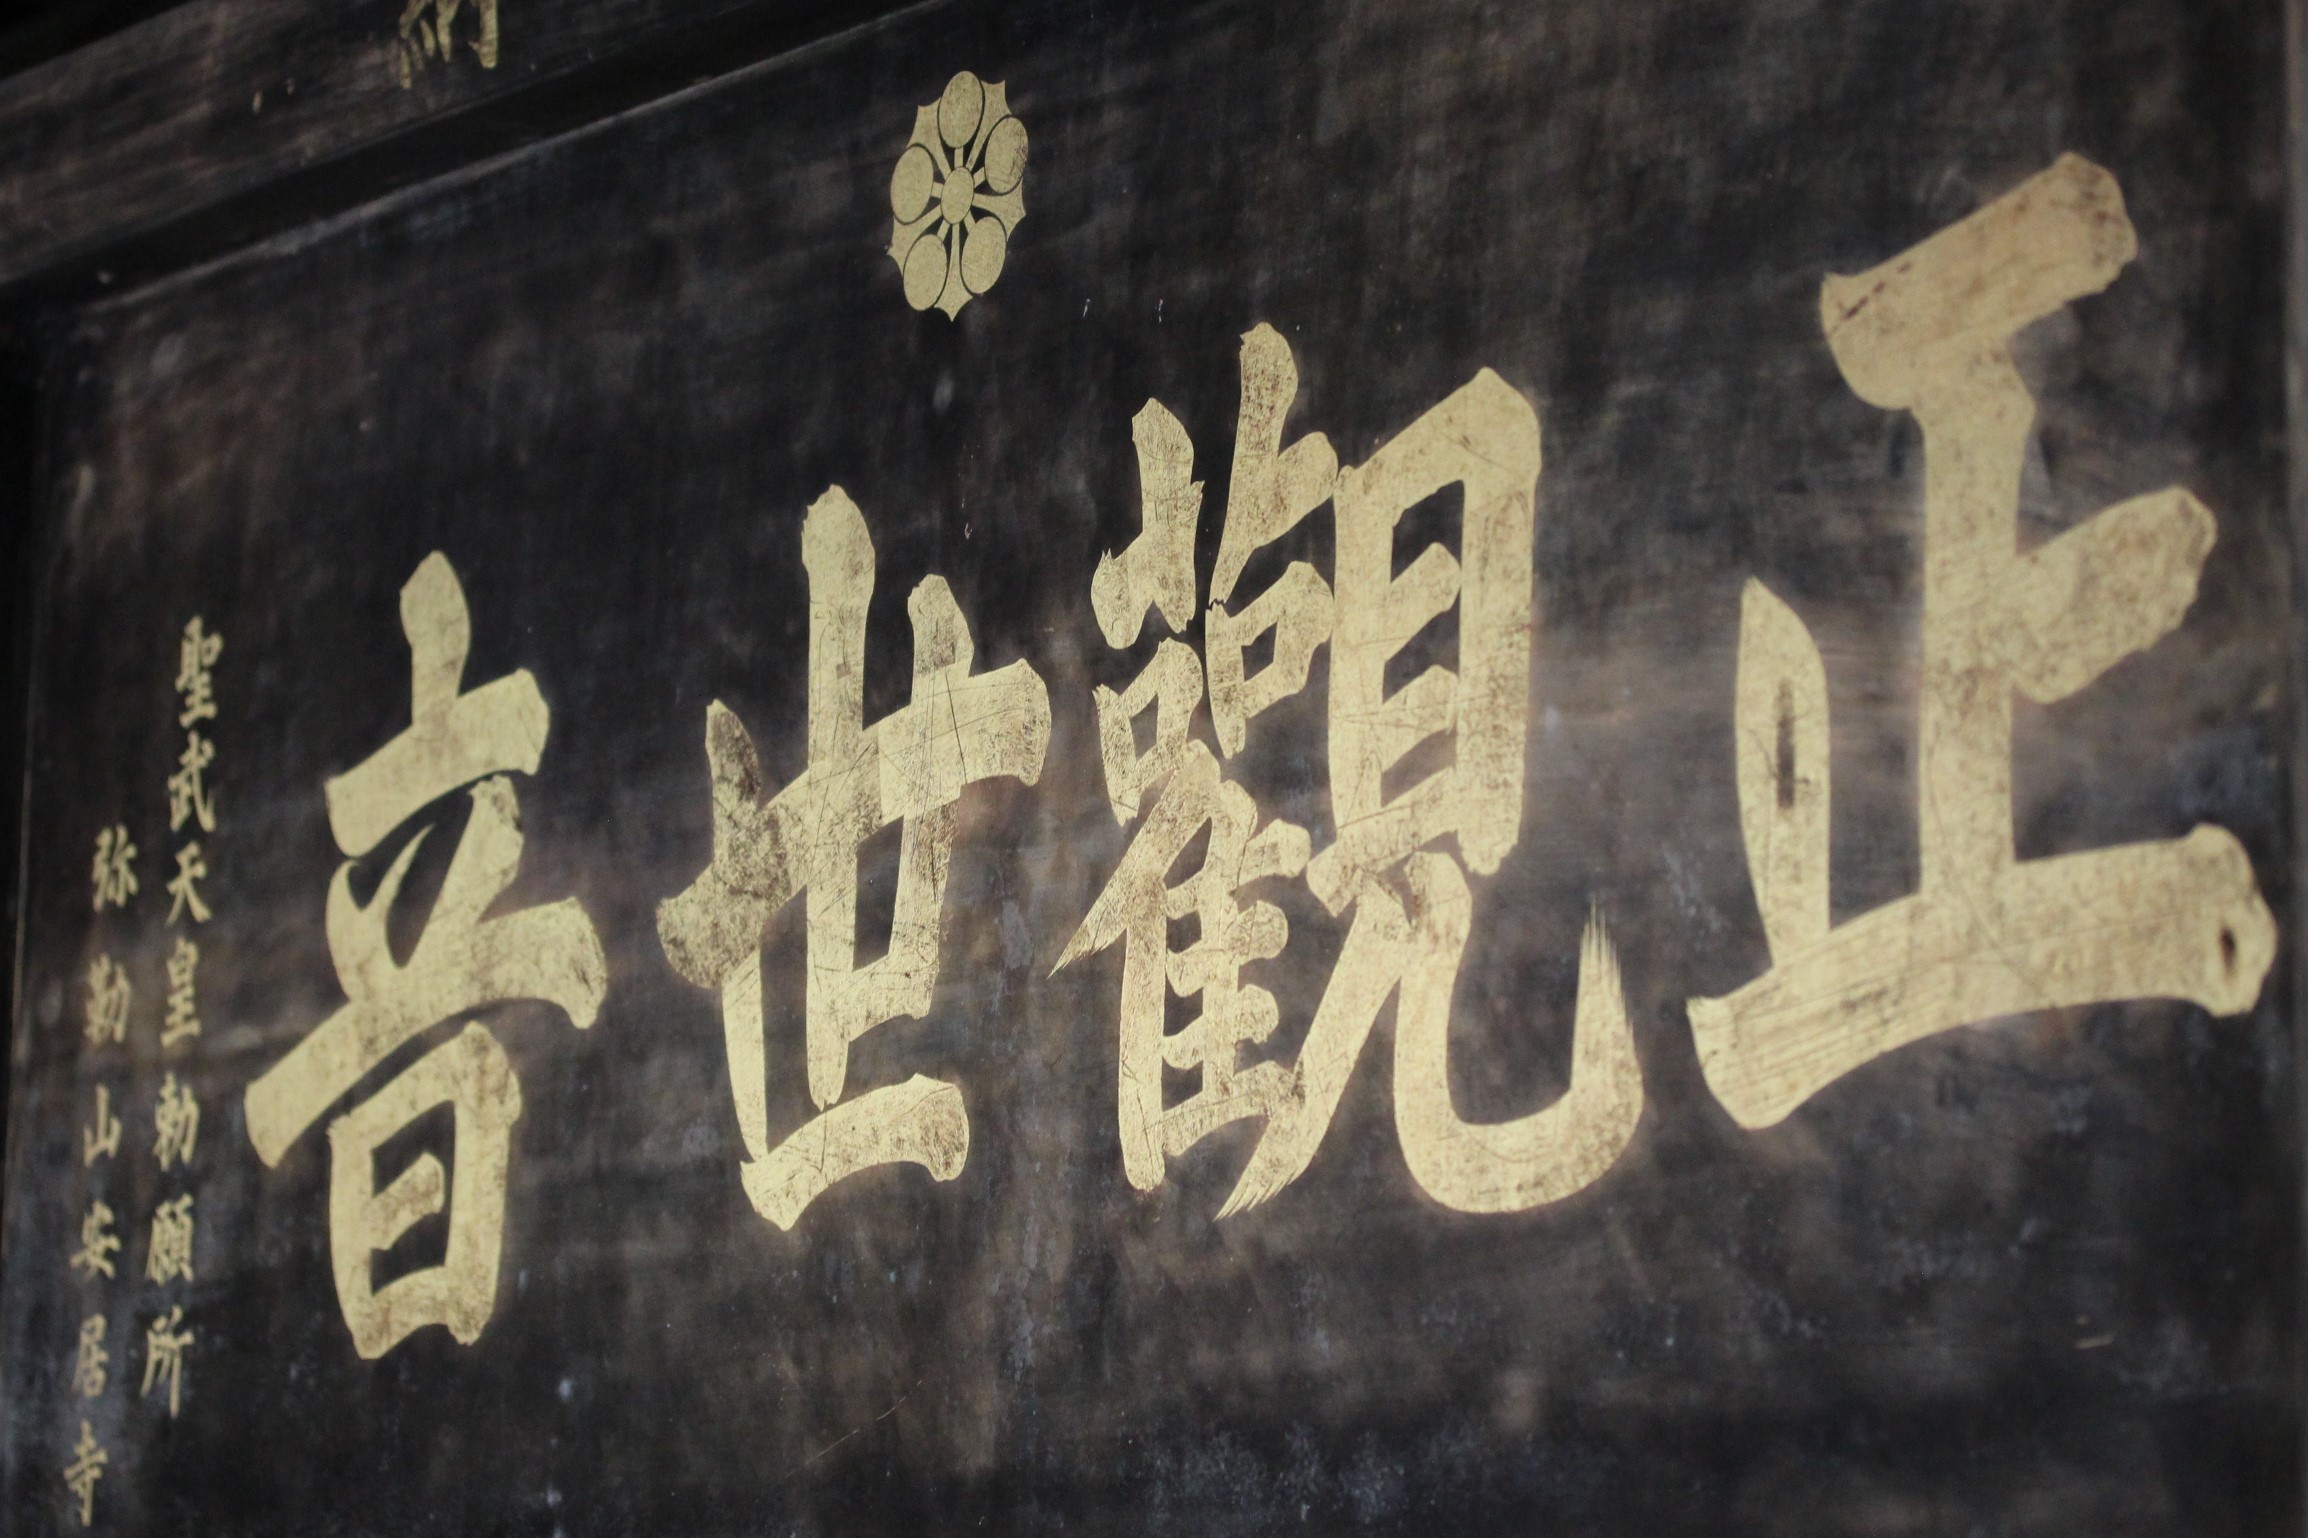 納
正觀世音
聖武天皇勅願所
弥勒山安居寺